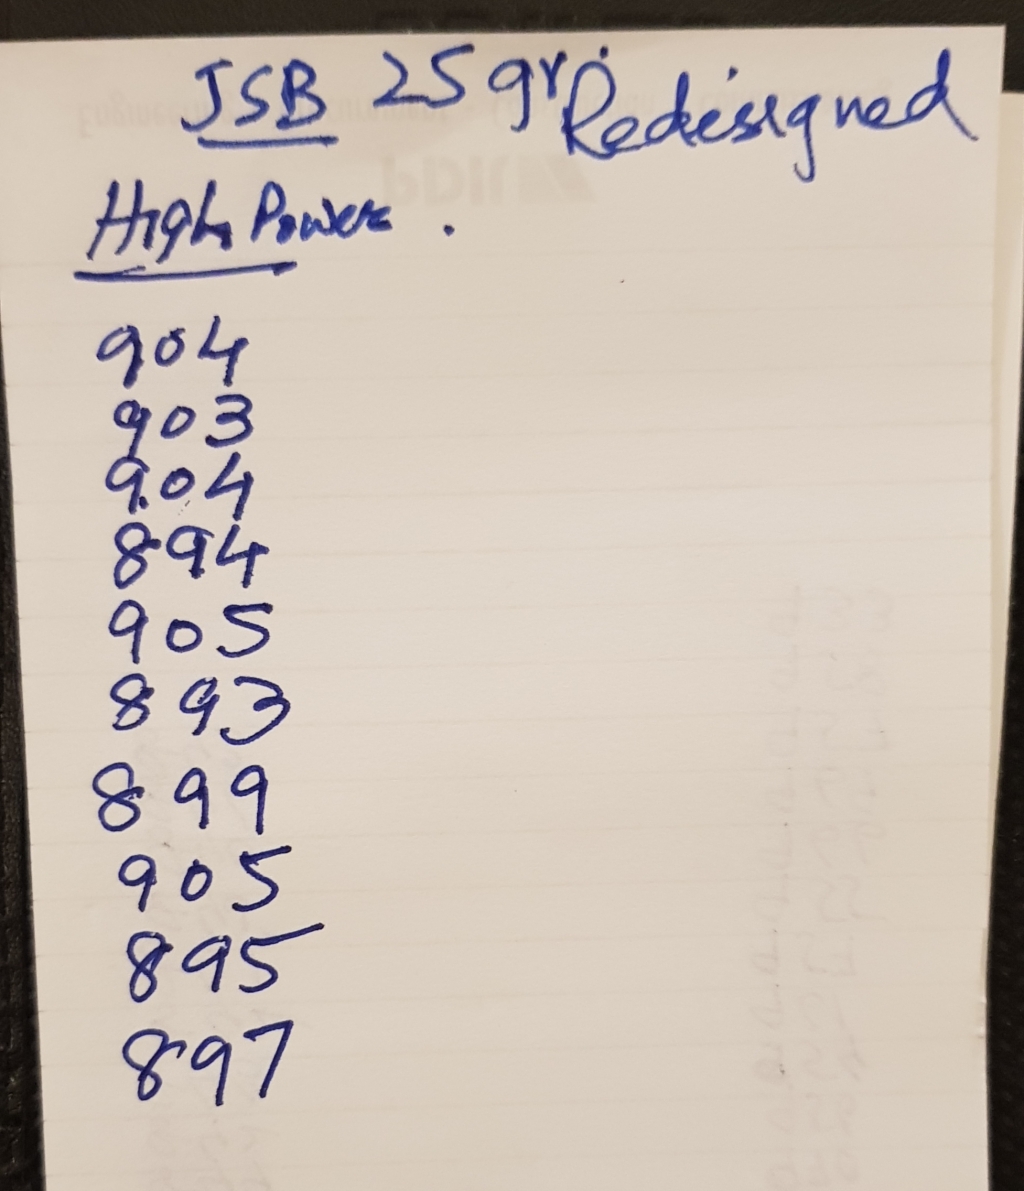 JSB 25 gr. Redesigned
High Power.
904
903
904
894
905
893
899
905
895
897